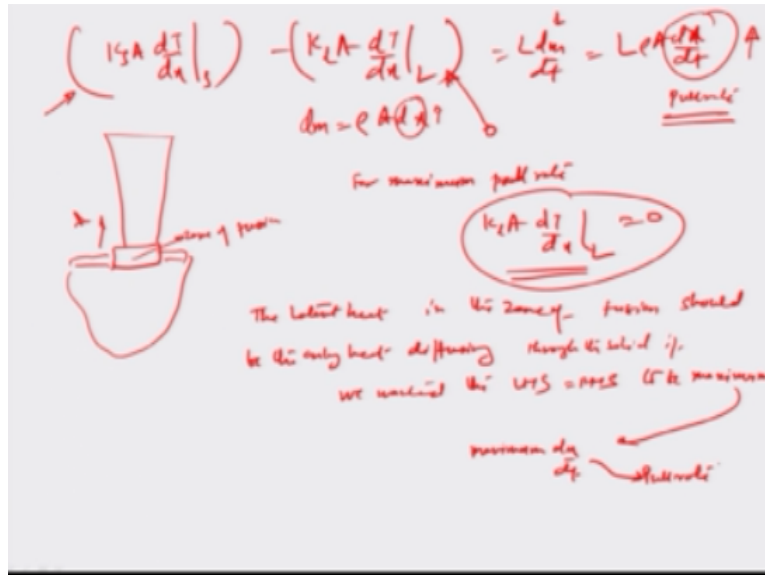 (K_S A dT/dx|_S) - (K_L A dT/dx|_L) = L dm/dt = LρA dx/dt ↑
Pull rate
dm = ρ A dx
For maximum pull rate
x ↑
zone of fusion
K_L A dT/dx|_L = 0
The latent heat in the zone of fusion should
be the only heat diffusing through the solid if
we wanted the LHS = RHS to be maximum
maximum dx/dt
Pull rate